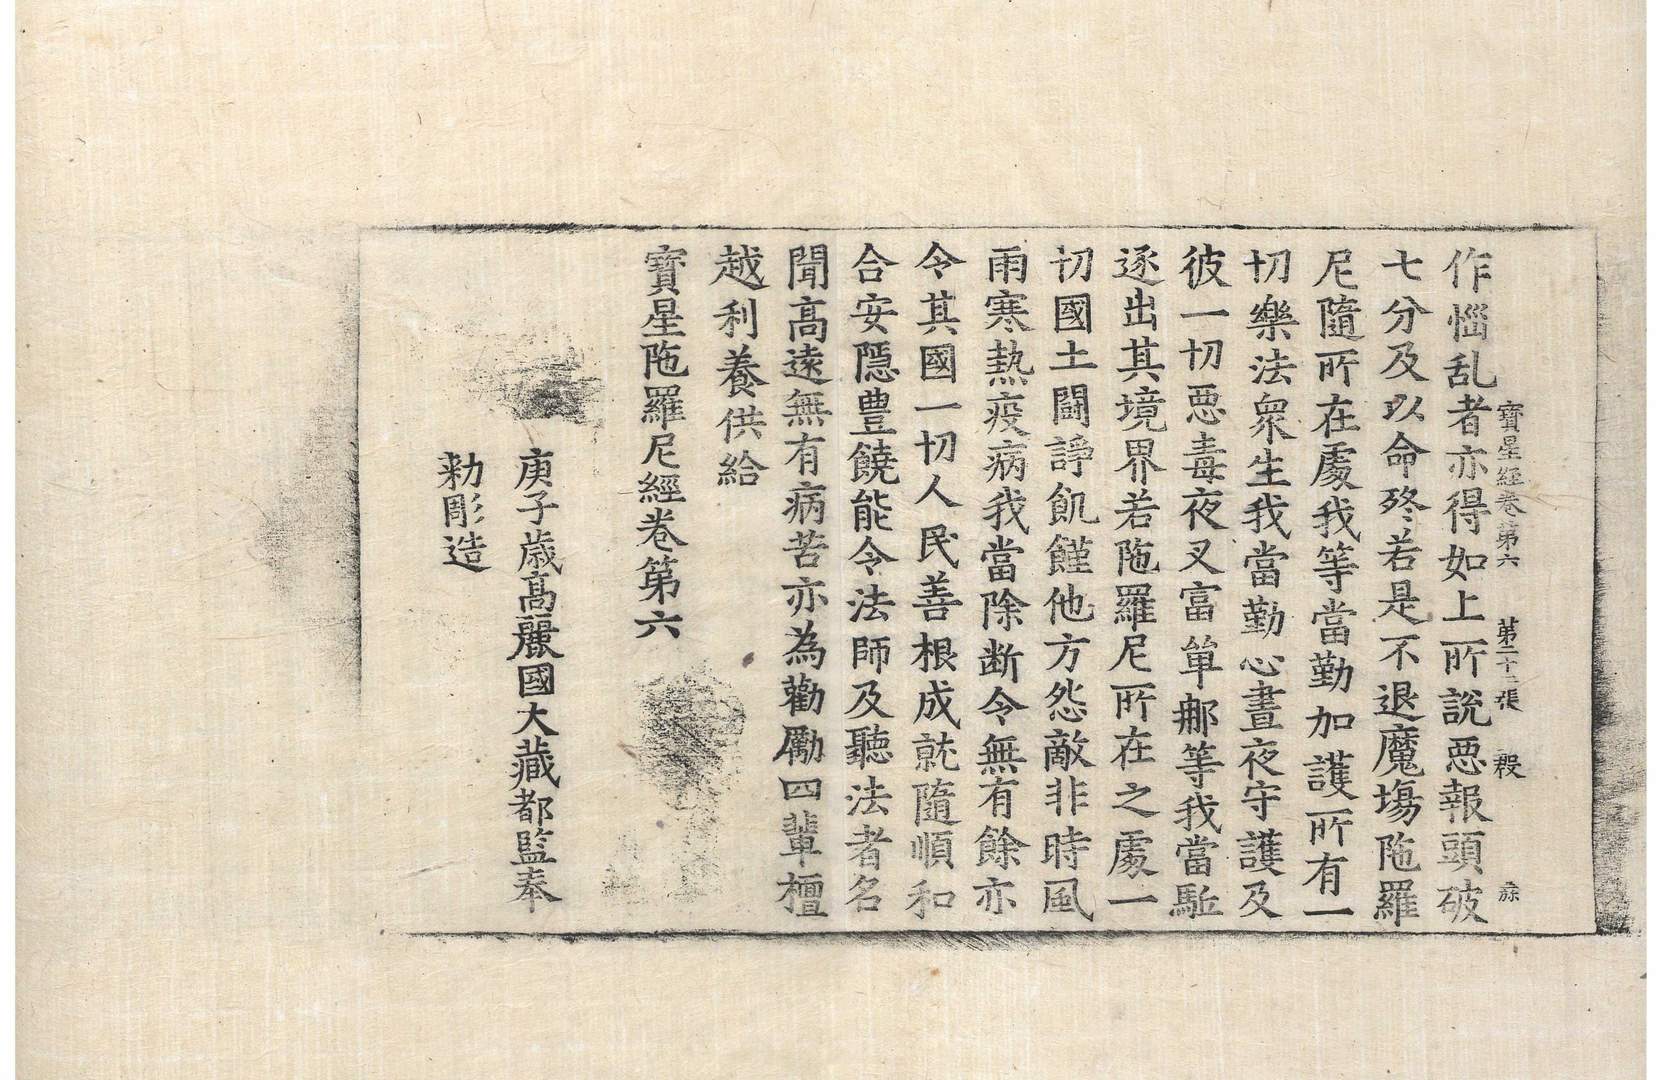 寶星經卷第六 第二十二張 殷
作惱乱者亦得如上所說惡報頭破
七分及以命終若是不退魔塲陁羅
尼隨所在處我等當勤加護所有一
切樂法衆生我當勤心晝夜守護及
彼一切惡毒夜叉富單那等我當駈
逐出其境界若陁羅尼所在之處一
切國土闘諍飢饉他方怨敵非時風
雨寒熱疫病我當除断令無有餘亦
令其國一切人民善根成就隨順和
合安隱豊饒能令法師及聽法者名
聞髙遠無有病苦亦為勸勵四輩檀
越利養供給
寶星陁羅尼經卷第六
庚子歳髙麗國大藏都監奉
勅彫造